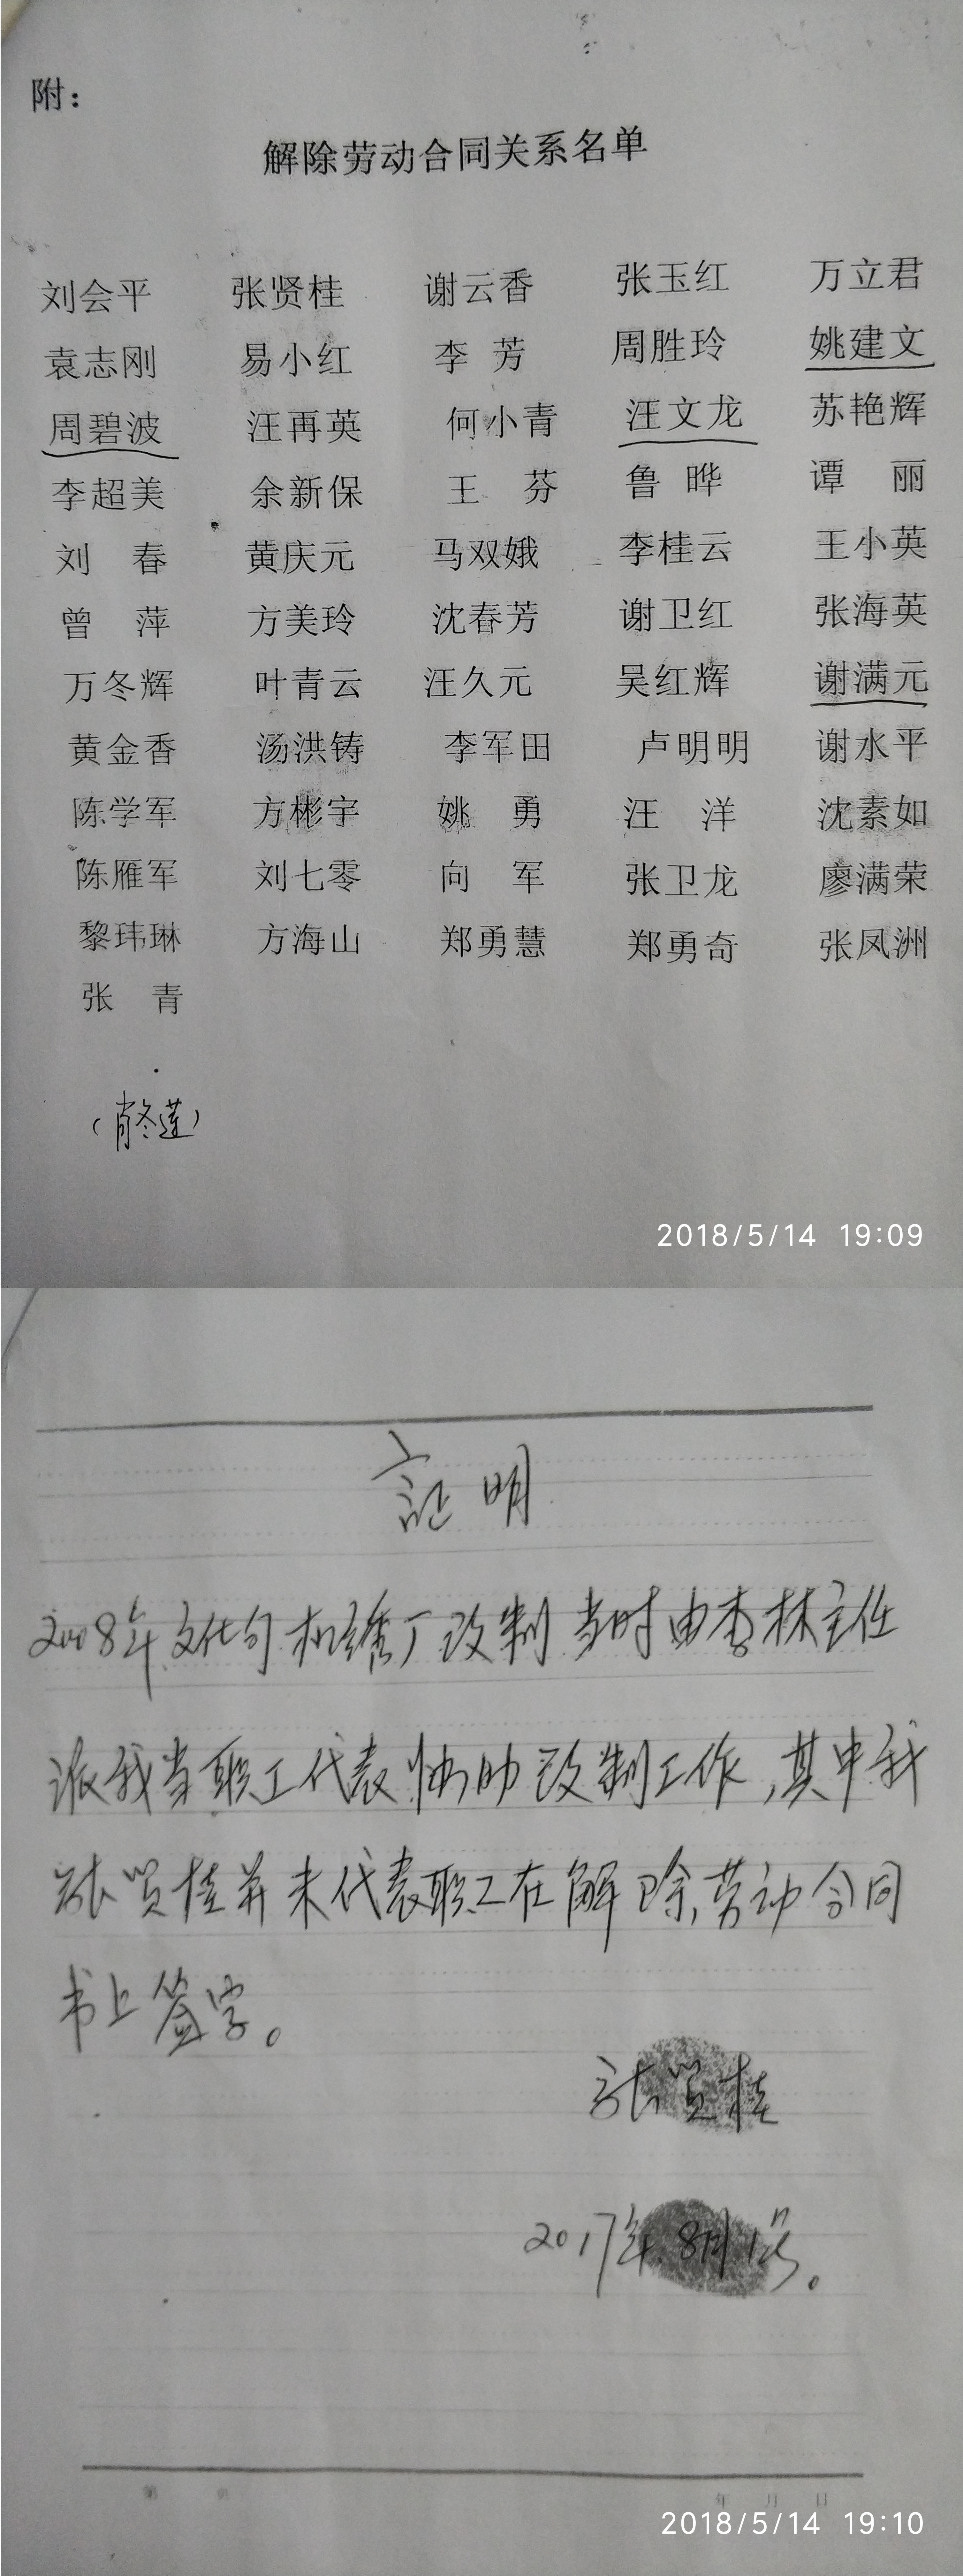 附：
解除劳动合同关系名单
刘会平 张贤桂 谢云香 张玉红 万立君
袁志刚 易小红 李 芳 周胜玲 姚建文
周碧波 汪再英 何小青 汪文龙 苏艳辉
李超美 余新保 王 芬 鲁 晔 谭 丽
刘 春 黄庆元 马双娥 李桂云 王小英
曾 萍 方美玲 沈春芳 谢卫红 张海英
万冬辉 叶青云 汪久元 吴红辉 谢满元
黄金香 汤洪铸 李军田 卢明明 谢水平
陈学军 方彬宇 姚 勇 汪 洋 沈素如
陈雁军 刘七零 向 军 张卫龙 廖满荣
黎玮琳 方海山 郑勇慧 郑勇奇 张凤洲
张 青
（肖冬莲）
2018/5/14 19:09
証明
2008年文化局机绣厂改制当时由李林主任
派我当职工代表协助改制工作，其中我
张贤桂并未代表职工在解除劳动合同
书上签字。
张贤桂
2017年8月1号。
第 页 年 月 日
2018/5/14 19:10